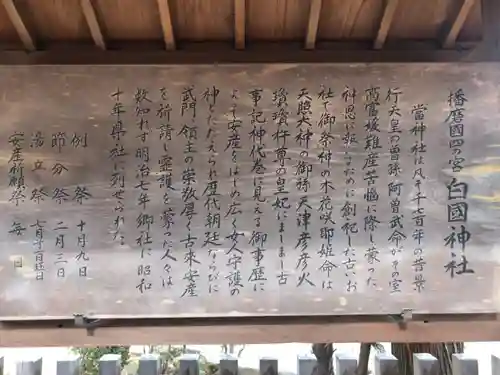 播磨國四の宮 白國神社
当神社は凡そ千七百年の昔景
行天皇の曽孫阿曽武命がその室
高富媛難産苦悩に際し蒙った
神恩に報いるために創祀した古いお
社で御祭神の木花咲耶姫命は
天照大神の御孫天津彦彦火
瓊瓊杵尊の皇妃にましまし古
事記神代巻に見える御事歴に
よって安産をはじめ広く女人守護の
神とたたえられ歴代朝廷ならびに
武門領主の崇敬厚く古来安産
を祈請し霊護を蒙った人々は
数知れず明治七年郷社に昭和
十年県社に列せられた。
例祭 十月九日
節分祭 二月三日
湯立祭
安産祈願祭 毎日